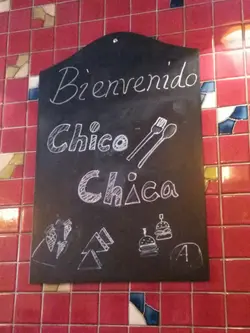 Bienvenido
Chico
Chica